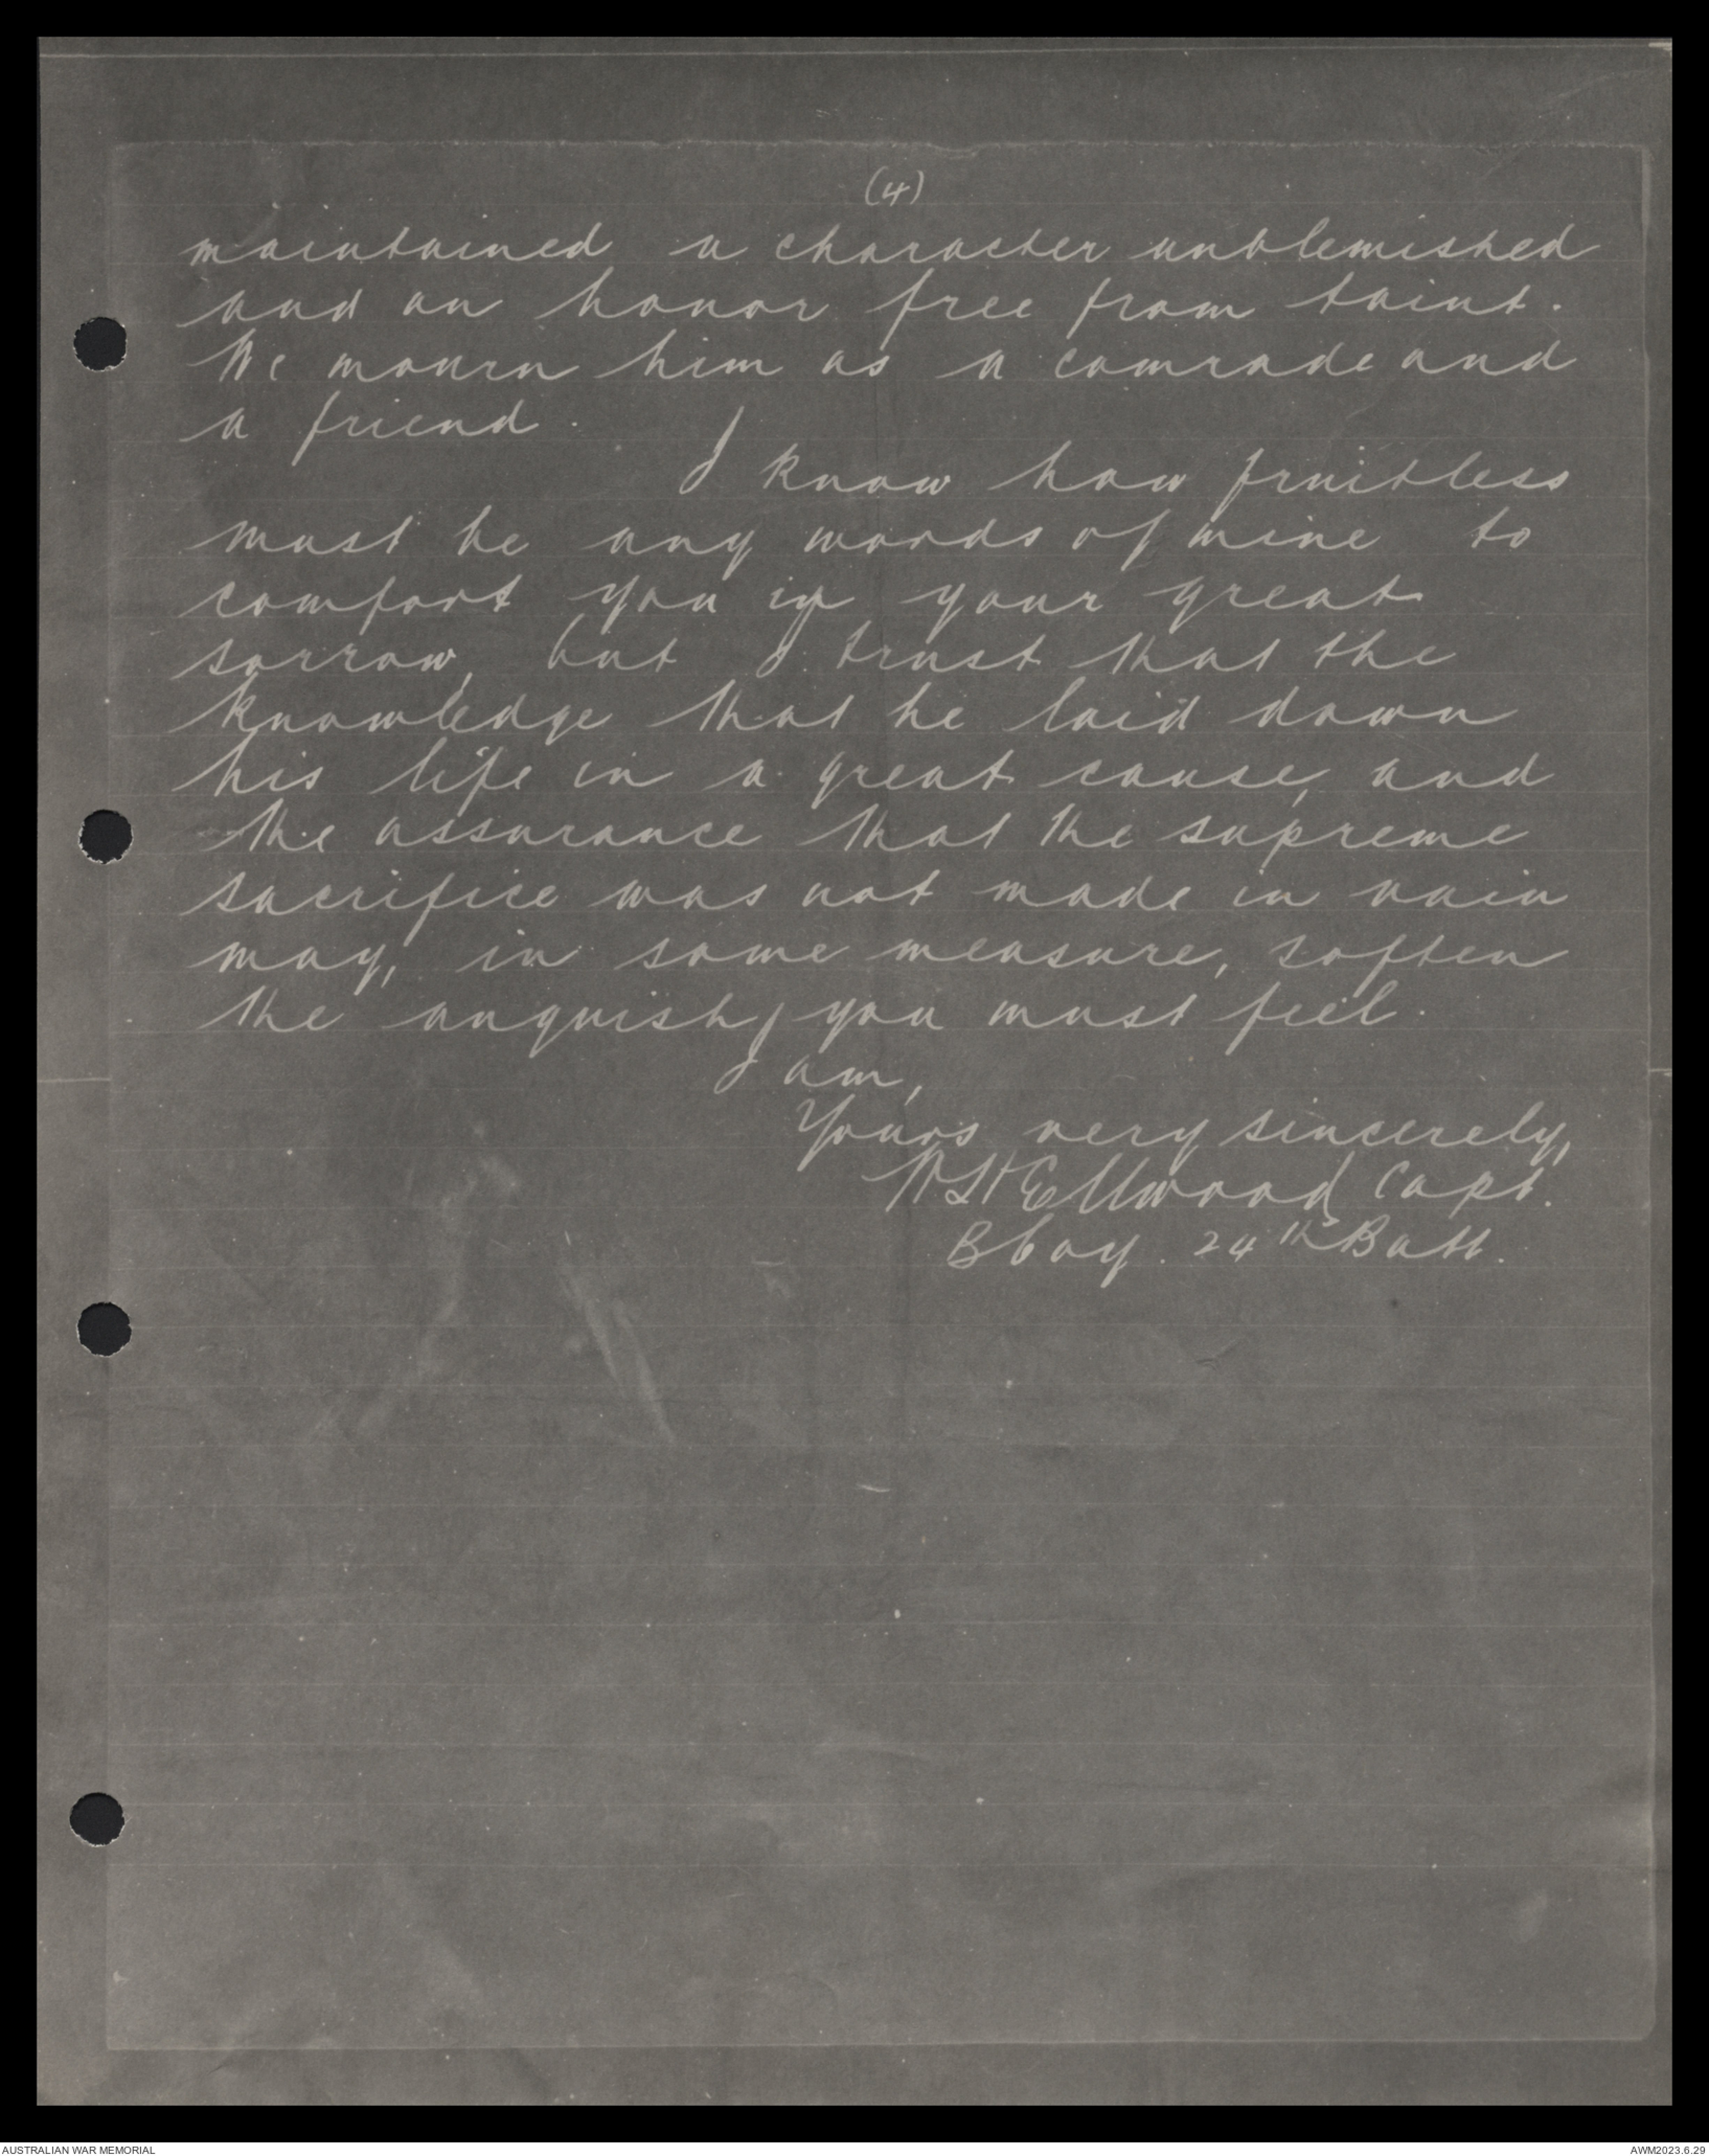 (4)
maintained a character unblemished
and an honor free from taint.
We mourn him as a comrade and
a friend.
I know how fruitless
must be any words of mine to
comfort you in your great
sorrow, but I trust that the
knowledge that he laid down
his life in a great cause, and
the assurance that the supreme
sacrifice was not made in vain
may, in some measure, soften
the anguish you must feel.
I am,
Yours very sincerely,
Ellwood Capt.
B Coy. 24th Batt.
AUSTRALIAN WAR MEMORIAL
AWM2023.6.29